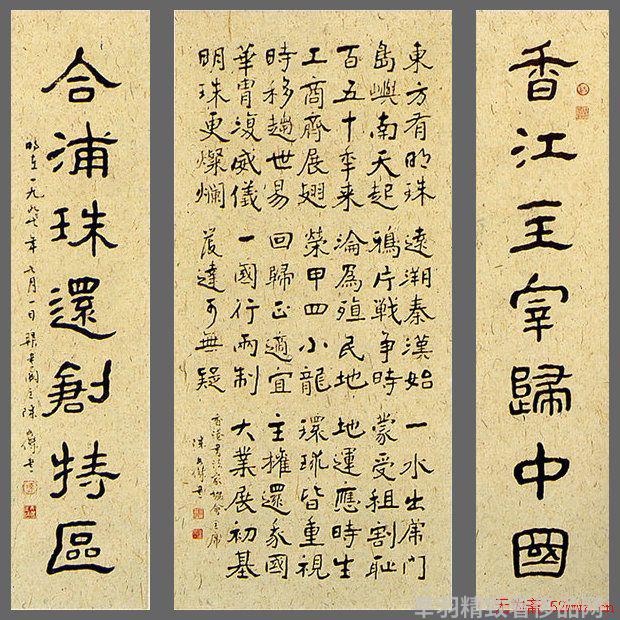 香江主宰歸中國
東方有明珠 遠溯秦漢始 一水出虎門
島嶼南天起 鴉片戰争時 蒙受租割恥
百五十年来 淪為殖民地 地運應時生
工商齊展翅 榮甲四小龍 環球皆重視
時移趨世易 回歸正適宜 主權還家國
華胄復威儀 一國行兩制 大業展初基
明珠更燦爛 發達可無疑
香港書法家協會主席
陳文傑書
合浦珠還創特區
時在一九九七年七月一日 陳文傑書